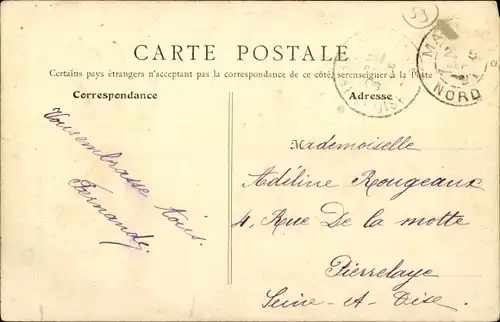 CARTE POSTALE
Certains pays étrangers n'acceptant pas la correspondance de ce côté, se renseigner à la Poste
Correspondance
Adresse
Vous embrasse tous.
Fernande.
Mademoiselle
Adéline Rougeaux
4, Rue De la motte
Pierrelaye
Seine-et-Oise.
NORD